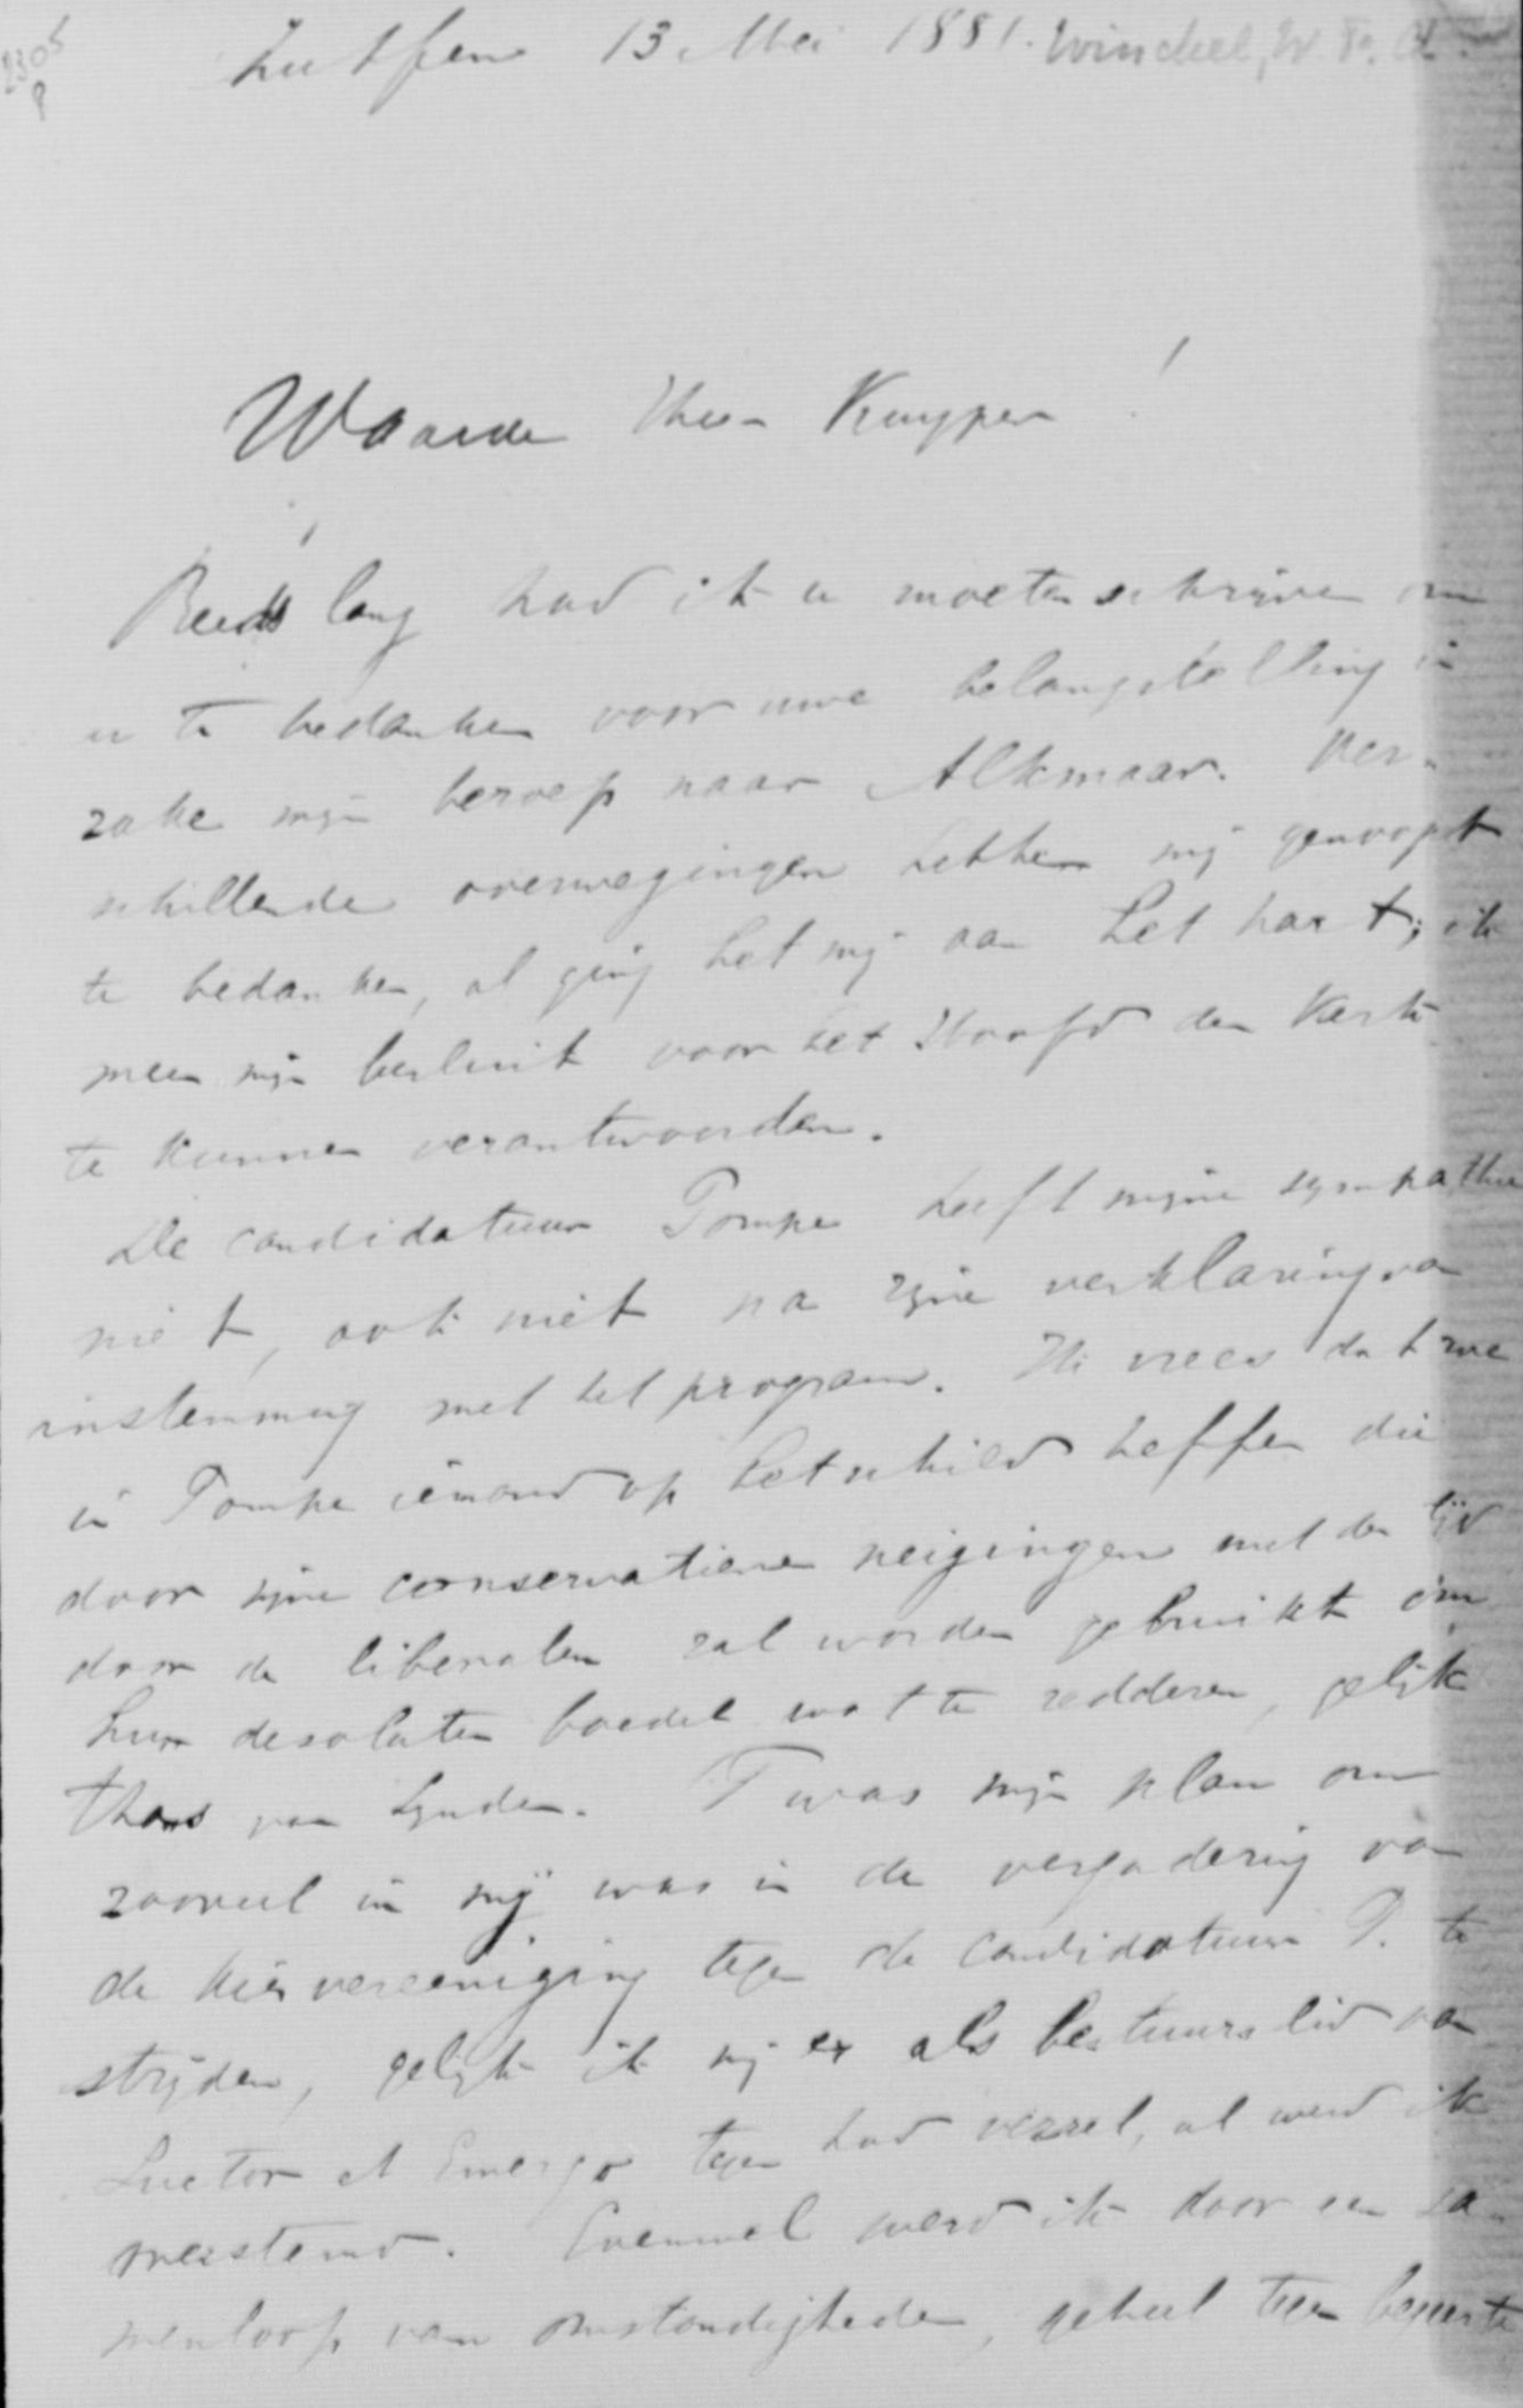 2305
Zutfen 13 Mei 1881. Winckel, W. F. A.
Waarde Heer Kuyper!
Reeds lang had ik u moeten schrijven om
u te bedanken voor uwe belangstelling in
zake mijn beroep naar Alkmaar. Ver-
schillende overwegingen hebben mij genoopt
te bedanken, al ging het mij aan het hart; ik
meen mijn besluit voor het Hoofd der Kerk
te kunnen verantwoorden.
De candidatuur Pompe heeft mijne sympathie
niet, ook niet na zijne verklaring van
instemming met het program. Ik vrees dat we
in Pompe iemand op het schild heffen die
door zijne conservatieve neigingen met der tijd
door de liberalen zal worden gebruikt om
hun desolaten boedel wat te redderen, gelijk
thans van Lynden. T was mijn plan om
zooveel in mij was in de vergadering van
de kiesvereeniging tegen de candidatuur P. te
strijden, gelijk ik mij er als bestuurslid van
Luctor et Emergo tegen had verzet, al werd ik
overstemd. Evenwel werd ik door een sa-
menloop van omstandigheden, geheel tegen